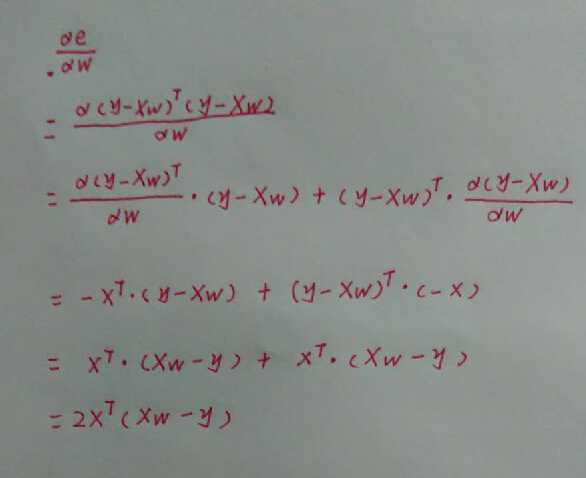 ∂e/∂w
= ∂(y-Xw)ᵀ(y-Xw)/∂w
= ∂(y-Xw)ᵀ/∂w · (y-Xw) + (y-Xw)ᵀ · ∂(y-Xw)/∂w
= -Xᵀ·(y-Xw) + (y-Xw)ᵀ·(-X)
= Xᵀ·(Xw-y) + Xᵀ·(Xw-y)
= 2Xᵀ(Xw-y)